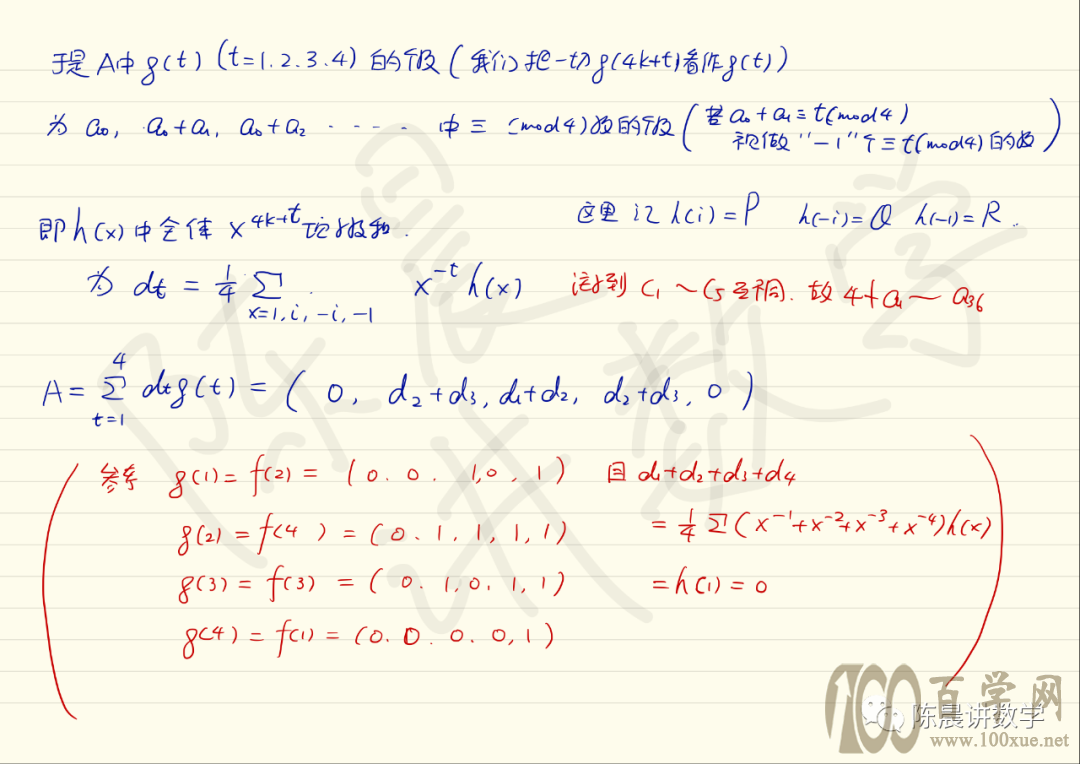 于是 A中 g(t) (t=1.2.3.4) 的个数 (我们把一切 g(4k+t)看作g(t))
为 a₀, a₀+a₁, a₀+a₂ ····· 中 ≡ (mod4)数的个数 (若 a₀+a₁≡t(mod4)
视做 "-1" 个≡t(mod4)的数)
即 h(x) 中全体 x^{4k+t} 项
这里记 h(i)=P h(-i)=Q h(-1)=R.
为 dt = 1/4 Σ_{x=1,i,-i,-1} x^{-t} h(x)
注意到 C₁~C₅互不同. 故 4∤a₁~a₃₆
A = Σ_{t=1}^{4} dt g(t) = ( 0, d₂+d₃, d₁+d₂, d₂+d₃, 0 )
g(1)=f(2)= (0. 0. 1,0, 1) 因 d₁+d₂+d₃+d₄
g(2)=f(4)=(0. 1. 1, 1, 1) = 1/4 Σ(x^{-1}+x^{-2}+x^{-3}+x^{-4})h(x)
g(3)=f(3) = ( 0. 1,0. 1, 1) =h(1)=0
g(4)=f(1)=(0. 0. 0. 0, 1)
陈晨讲数学
100 百学网
陈晨讲数学
www.100xue.net